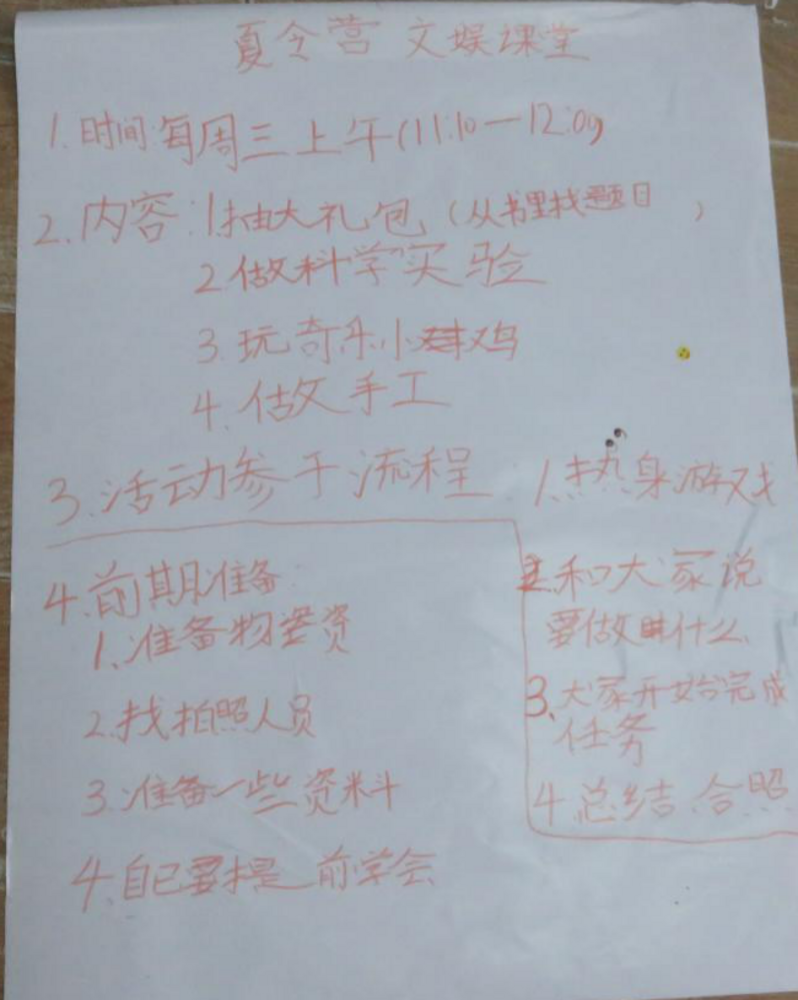 夏令营 文娱课堂
1. 时间:每周三上午(11:10—12:00)
2. 内容:1.抽大礼包(从书里找题目)
2.做科学实验
3.玩奇乐小鸡
4.做手工
3.活动参于流程
1.热身游戏
2.和大家说
要做什么
3、大家开始完成
任务
4.总结.合照
4.前期准备:
1.准备物资
2.找拍照人员
3.准备一些资料
4.自己要提前学会